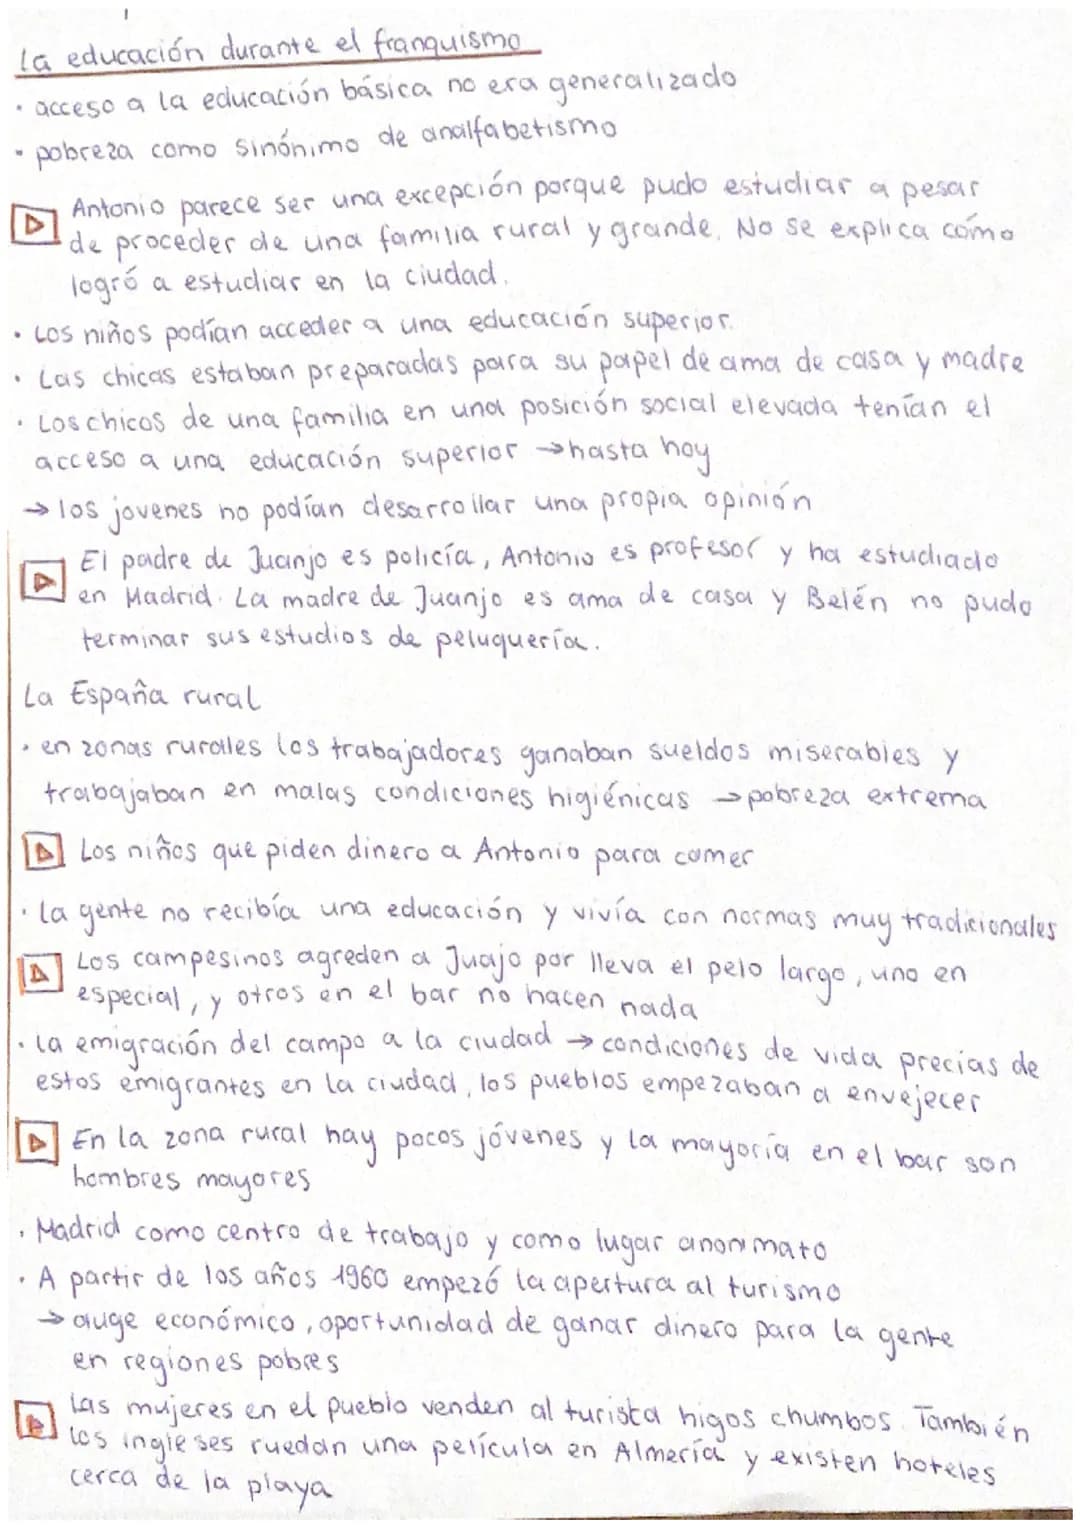 La educación durante el franquismo
· acceso a la educación básica no era generalizado
· pobreza como sinónimo de analfabetismo
Antonio parece ser una excepción porque pudo estudiar a pesar
de proceder de una familia rural y grande. No se explica cómo
logró a estudiar en la ciudad.
· Los niños podían acceder a una educación superior.
· Las chicas estaban preparadas para su papel de ama de casa y madre
· Los chicos de una familia en una posición social elevada tenían el
acceso a una educación superior → hasta hoy
→ los jovenes no podían desarrollar una propia opinión
El padre de Juanjo es policía, Antonio es profesor y ha estudiado
en Madrid. La madre de Juanjo es ama de casa y Belén no pudo
terminar sus estudios de peluquería.
La España rural
· en zonas rurales los trabajadores ganaban sueldos miserables y
trabajaban en malas condiciones higiénicas → pobreza extrema
Los niños que piden dinero a Antonio para comer
· la gente no recibía una educación y vivía con normas muy tradicionales
Los campesinos agreden a Juajo por lleva el pelo largo, uno en
especial, y otros en el bar no hacen nada
· la emigración del campo a la ciudad → condiciones de vida precias de
estos emigrantes en la ciudad, los pueblos empezaban a envejecer
En la zona rural hay pocos jóvenes y la mayoría en el bar son
hombres mayores
· Madrid como centro de trabajo y como lugar anonimato
· A partir de los años 1960 empezó la apertura al turismo
→ auge económico, oportunidad de ganar dinero para la gente
en regiones pobres
Las mujeres en el pueblo venden al turista higos chumbos. También
los ingleses ruedan una película en Almería y existen hoteles
cerca de la playa